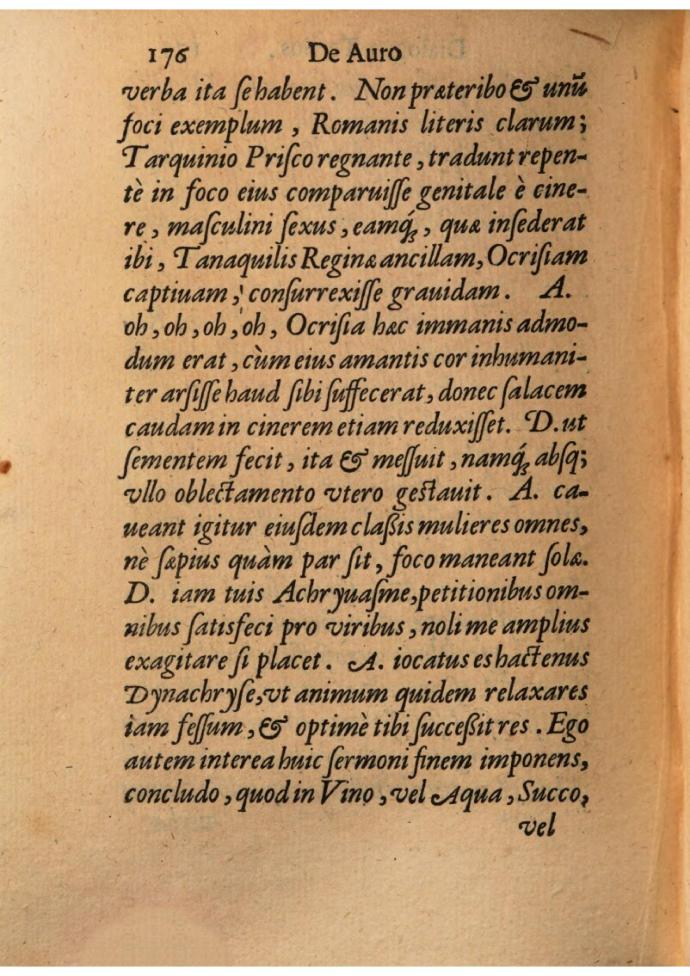 176 De Auro
verba ita ſe habent. Non præteribo & unū
foci exemplum, Romanis literis clarum;
Tarquinio Priſco regnante, tradunt repen-
tè in foco eius comparuiſſe genitale è cine-
re, maſculini ſexus, eamq́ꝫ, quæ inſederat
ibi, Tanaquilis Reginæ ancillam, Ocriſiam
captiuam, conſurrexiſſe grauidam. A.
oh, oh, oh, oh, Ocriſia hæc immanis admo-
dum erat, cùm eius amantis cor inhumani-
ter arſiſſe haud ſibi ſuffecerat, donec ſalacem
caudam in cinerem etiam reduxiſſet. D. ut
ſementem fecit, ita & meſſuit, namq́ꝫ abſq;
vllo oblectamento vtero geſtauit. A. ca-
ueant igitur eiuſdem claßis mulieres omnes,
nè ſæpius quàm par ſit, foco maneant ſolæ.
D. iam tuis Achryuaſme, petitionibus om-
nibus ſatisfeci pro viribus, noli me amplius
exagitare ſi placet. A. iocatus es hactenus
Dynachryſe, vt animum quidem relaxares
iam feſſum, & optimè tibi ſucceßit res. Ego
autem interea huic ſermoni finem imponens,
concludo, quod in Vino, vel Aqua, Succo,
vel